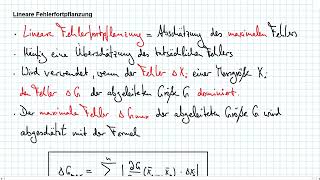 Lineare Fehlerfortpflanzung
• Lineare Fehlerfortpflanzung = Abschätzung des maximalen Fehlers
• Häufig eine Überschätzung des tatsächlichen Fehlers
• Wird verwendet, wenn der Fehler ΔXᵢ einer Messgröße Xᵢ
den Fehler ΔG der abgeleiteten Größe G dominiert.
• Der maximale Fehler ΔG_max der abgeleiteten Größe G wird
abgeschätzt mit der Formel
ΔG_max = Σ | ∂G/∂xᵢ (x̄₁, ..., x̄ₙ) · Δxᵢ |